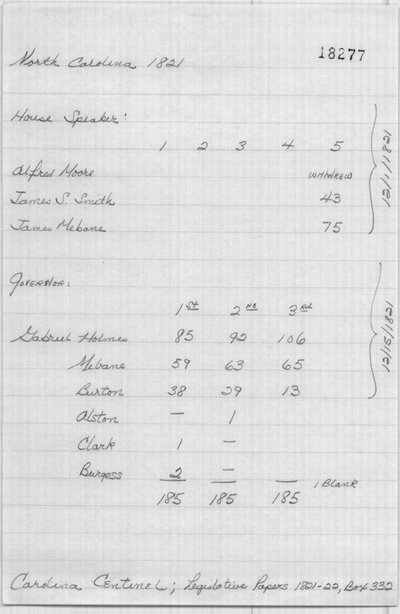 North Carolina 1821
18277
House Speaker:
1 2 3 4 5
Alfred Moore WITHDREW
James S. Smith 43
James Mebane 75
12/1/1821
Governor:
1st 2nd 3rd
Gabriel Holmes 85 92 106
Mebane 59 63 65
Burton 38 29 13
Alston — 1
Clark 1 —
Burgess 2 — 1 Blank
185 185 185
12/5/1821
Carolina Centinel; Legislative Papers 1821-22, Box 332